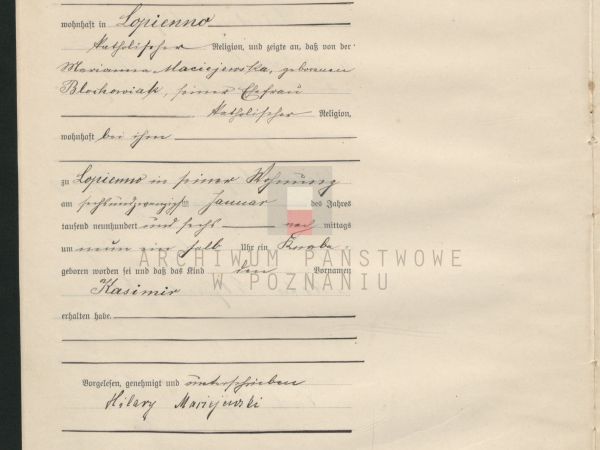 wohnhaft in Lopienno
katholischer Religion, und zeigte an, daß von der
Marianna Maciejewska, geborenen
Blochowiak, seiner Ehefrau
katholischer Religion,
wohnhaft bei ihm
zu Lopienno in seiner Wohnung
am sechsundzwanzigsten Januar des Jahres
tausend neunhundert und sechs nach mittags
um neun ein halb Uhr ein Knabe
geboren worden sei und daß das Kind den Vornamen
Kasimir
erhalten habe.
Vorgelesen, genehmigt und unterschrieben
Hilary Maciejewski
ARCHIWUM PAŃSTWOWE
W POZNANIU